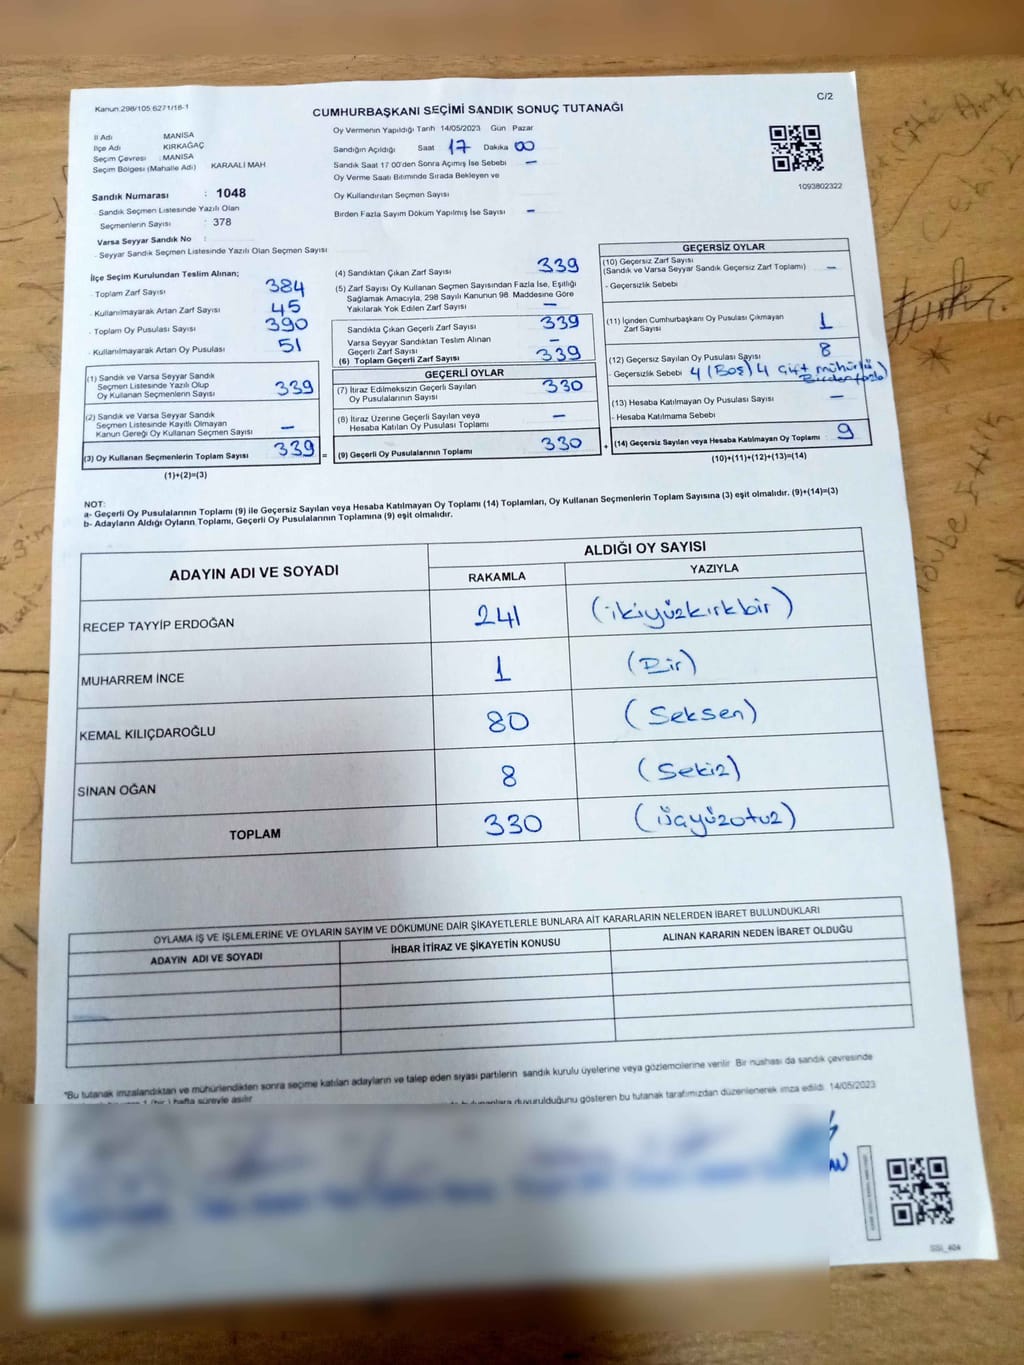 Kanun:298/105:6271/16-1
C/2
CUMHURBAŞKANI SEÇİMİ SANDIK SONUÇ TUTANAĞI
İl Adı MANİSA
İlçe Adı KIRKAĞAÇ
Seçim Çevresi : MANİSA
Seçim Bölgesi (Mahalle Adı) KARAALİ MAH
Sandık Numarası : 1048
Sandık Seçmen Listesinde Yazılı Olan
Seçmenlerin Sayısı : 378
Varsa Seyyar Sandık No :
- Seyyar Sandık Seçmen Listesinde Yazılı Olan Seçmen Sayısı
Oy Vermenin Yapıldığı Tarih 14/05/2023 Gün Pazar
Sandığın Açıldığı Saat 17 Dakika 00
Sandık Saat 17 00'den Sonra Açımış İse Sebebi –
Oy Verme Saati Bitiminde Sırada Bekleyen ve
Oy Kullandırılan Seçmen Sayısı
Birden Fazla Sayım Döküm Yapılmış İse Sayısı –
1093802322
İlçe Seçim Kurulundan Teslim Alınan;
- Toplam Zarf Sayısı 384
- Kullanılmayarak Artan Zarf Sayısı 45
- Toplam Oy Pusulası Sayısı 390
- Kullanılmayarak Artan Oy Pusulası 51
(1) Sandık ve Varsa Seyyar Sandık
Seçmen Listesinde Yazılı Olup
Oy Kullanan Seçmenlerin Sayısı 339
(2) Sandık ve Varsa Seyyar Sandık
Seçmen Listesinde Kayıtlı Olmayan
Kanun Gereği Oy Kullanan Seçmen Sayısı –
(3) Oy Kullanan Seçmenlerin Toplam Sayısı 339 =
(1)+(2)=(3)
(4) Sandıktan Çıkan Zarf Sayısı 339
(5) Zarf Sayısı Oy Kullanan Seçmen Sayısından Fazla İse, Eşitliği
Sağlamak Amacıyla, 298 Sayılı Kanunun 98. Maddesine Göre
Yakılarak Yok Edilen Zarf Sayısı –
Sandıkta Çıkan Geçerli Zarf Sayısı 339
Varsa Seyyar Sandıktan Teslim Alınan
Geçerli Zarf Sayısı –
(6) Toplam Geçerli Zarf Sayısı 339
GEÇERLİ OYLAR
(7) İtiraz Edilmeksizin Geçerli Sayılan
Oy Pusulalarının Sayısı 330
(8) İtiraz Üzerine Geçerli Sayılan veya
Hesaba Katılan Oy Pusulası Toplamı –
(9) Geçerli Oy Pusulalarının Toplamı 330 +
GEÇERSİZ OYLAR
(10) Geçersiz Zarf Sayısı
(Sandık ve Varsa Seyyar Sandık Geçersiz Zarf Toplamı) –
- Geçersizlik Sebebi
(11) İçinden Cumhurbaşkanı Oy Pusulası Çıkmayan
Zarf Sayısı 1
(12) Geçersiz Sayılan Oy Pusulası Sayısı 8
- Geçersizlik Sebebi 4 (Boş) 4 Çift mühürlü
Birden fazla
(13) Hesaba Katılmayan Oy Pusulası Sayısı –
- Hesaba Katılmama Sebebi
(14) Geçersiz Sayılan veya Hesaba Katılmayan Oy Toplamı 9
(10)+(11)+(12)+(13)=(14)
NOT:
a- Geçerli Oy Pusulalarının Toplamı (9) ile Geçersiz Sayılan veya Hesaba Katılmayan Oy Toplamı (14) Toplamları, Oy Kullanan Seçmenlerin Toplam Sayısına (3) eşit olmalıdır. (9)+(14)=(3)
b- Adayların Aldığı Oyların Toplamı, Geçerli Oy Pusulalarının Toplamına (9) eşit olmalıdır.
ADAYIN ADI VE SOYADI ALDIĞI OY SAYISI
RAKAMLA YAZIYLA
RECEP TAYYİP ERDOĞAN 241 (ikiyüzkırkbir)
MUHARREM İNCE 1 (Bir)
KEMAL KILIÇDAROĞLU 80 (Seksen)
SİNAN OĞAN 8 (Sekiz)
TOPLAM 330 (üçyüzotuz)
OYLAMA İŞ VE İŞLEMLERİNE VE OYLARIN SAYIM VE DÖKÜMÜNE DAİR ŞİKAYETLERLE BUNLARA AİT KARARLARIN NELERDEN İBARET BULUNDUKLARI
ADAYIN ADI VE SOYADI İHBAR İTİRAZ VE ŞİKAYETİN KONUSU ALINAN KARARIN NEDEN İBARET OLDUĞU
*Bu tutanak imzalandıktan ve mühürlendikten sonra seçime katılan adayların ve talep eden siyasi partilerin sandık kurulu üyelerine veya gözlemcilerine verilir. Bir nüshası da sandık çevresinde
1 (bir) hafta süreyle asılır
duyurulduğunu gösteren bu tutanak tarafımızdan düzenlenerek imza edildi. 14/05/2023